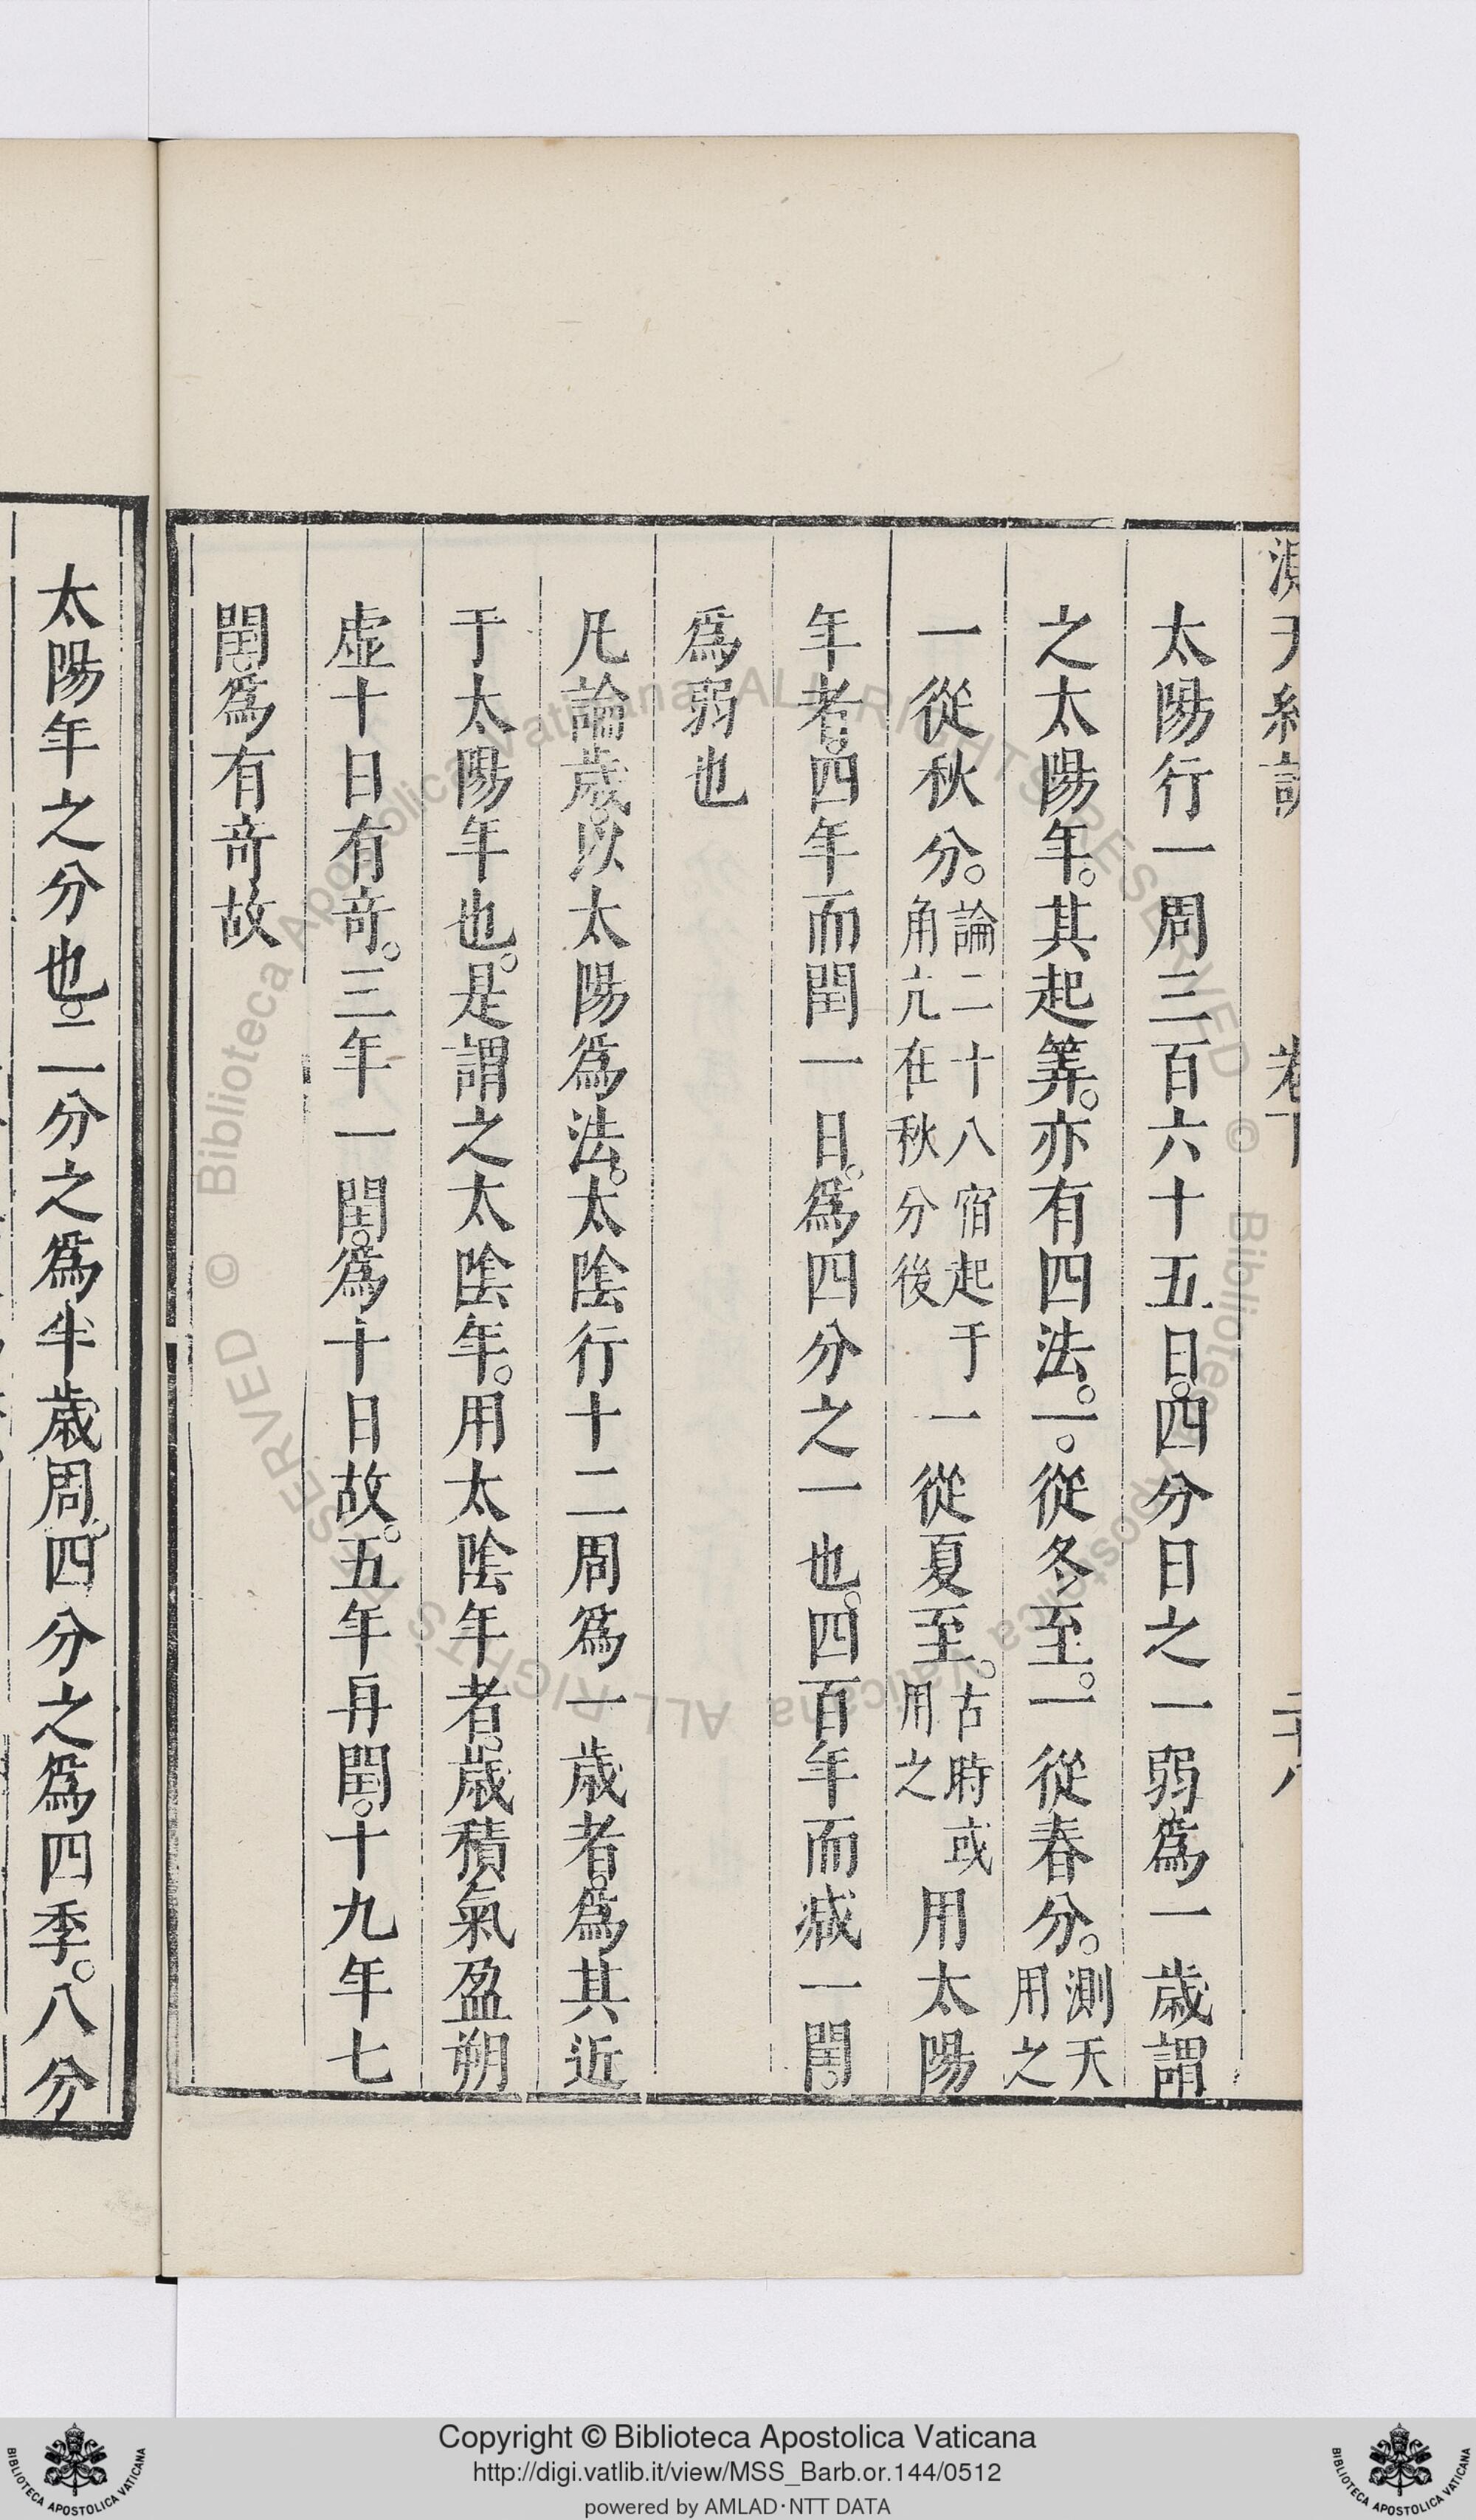 太陽行一周三百六十五日。四分日之一弱爲一歲謂
之太陽年。其起筭。亦有四法。一。從冬至。一從春分。測天用之
一從秋分。論二十八宿起于角亢在秋分後一從夏至。古時或用之用太陽
年者。四年而閏一日。爲四分之一也。四百年而減一閏。
爲弱也
凡論歲。以太陽爲法。太陰行十二周爲一歲者。爲其近
于太陽年也。是謂之太陰年。用太陰年者。歲積氣盈朔
虛十日有竒。三年一閏。爲十日故。五年再閏。十九年七
閏。爲有竒故
太陽年之分也。二分之爲半歲周。四分之爲四季。八分
Copyright © Biblioteca Apostolica Vaticana
http://digi.vatlib.it/view/MSS_Barb.or.144/0512
powered by AMLAD·NTT DATA
BIBLIOTECA APOSTOLICA VATICANA
BIBLIOTECA APOSTOLICA VATICANA
© Biblioteca Apostolica Vaticana ALL RIGHTS RESERVED
© Biblioteca Apostolica Vaticana ALL RIGHTS RESERVED